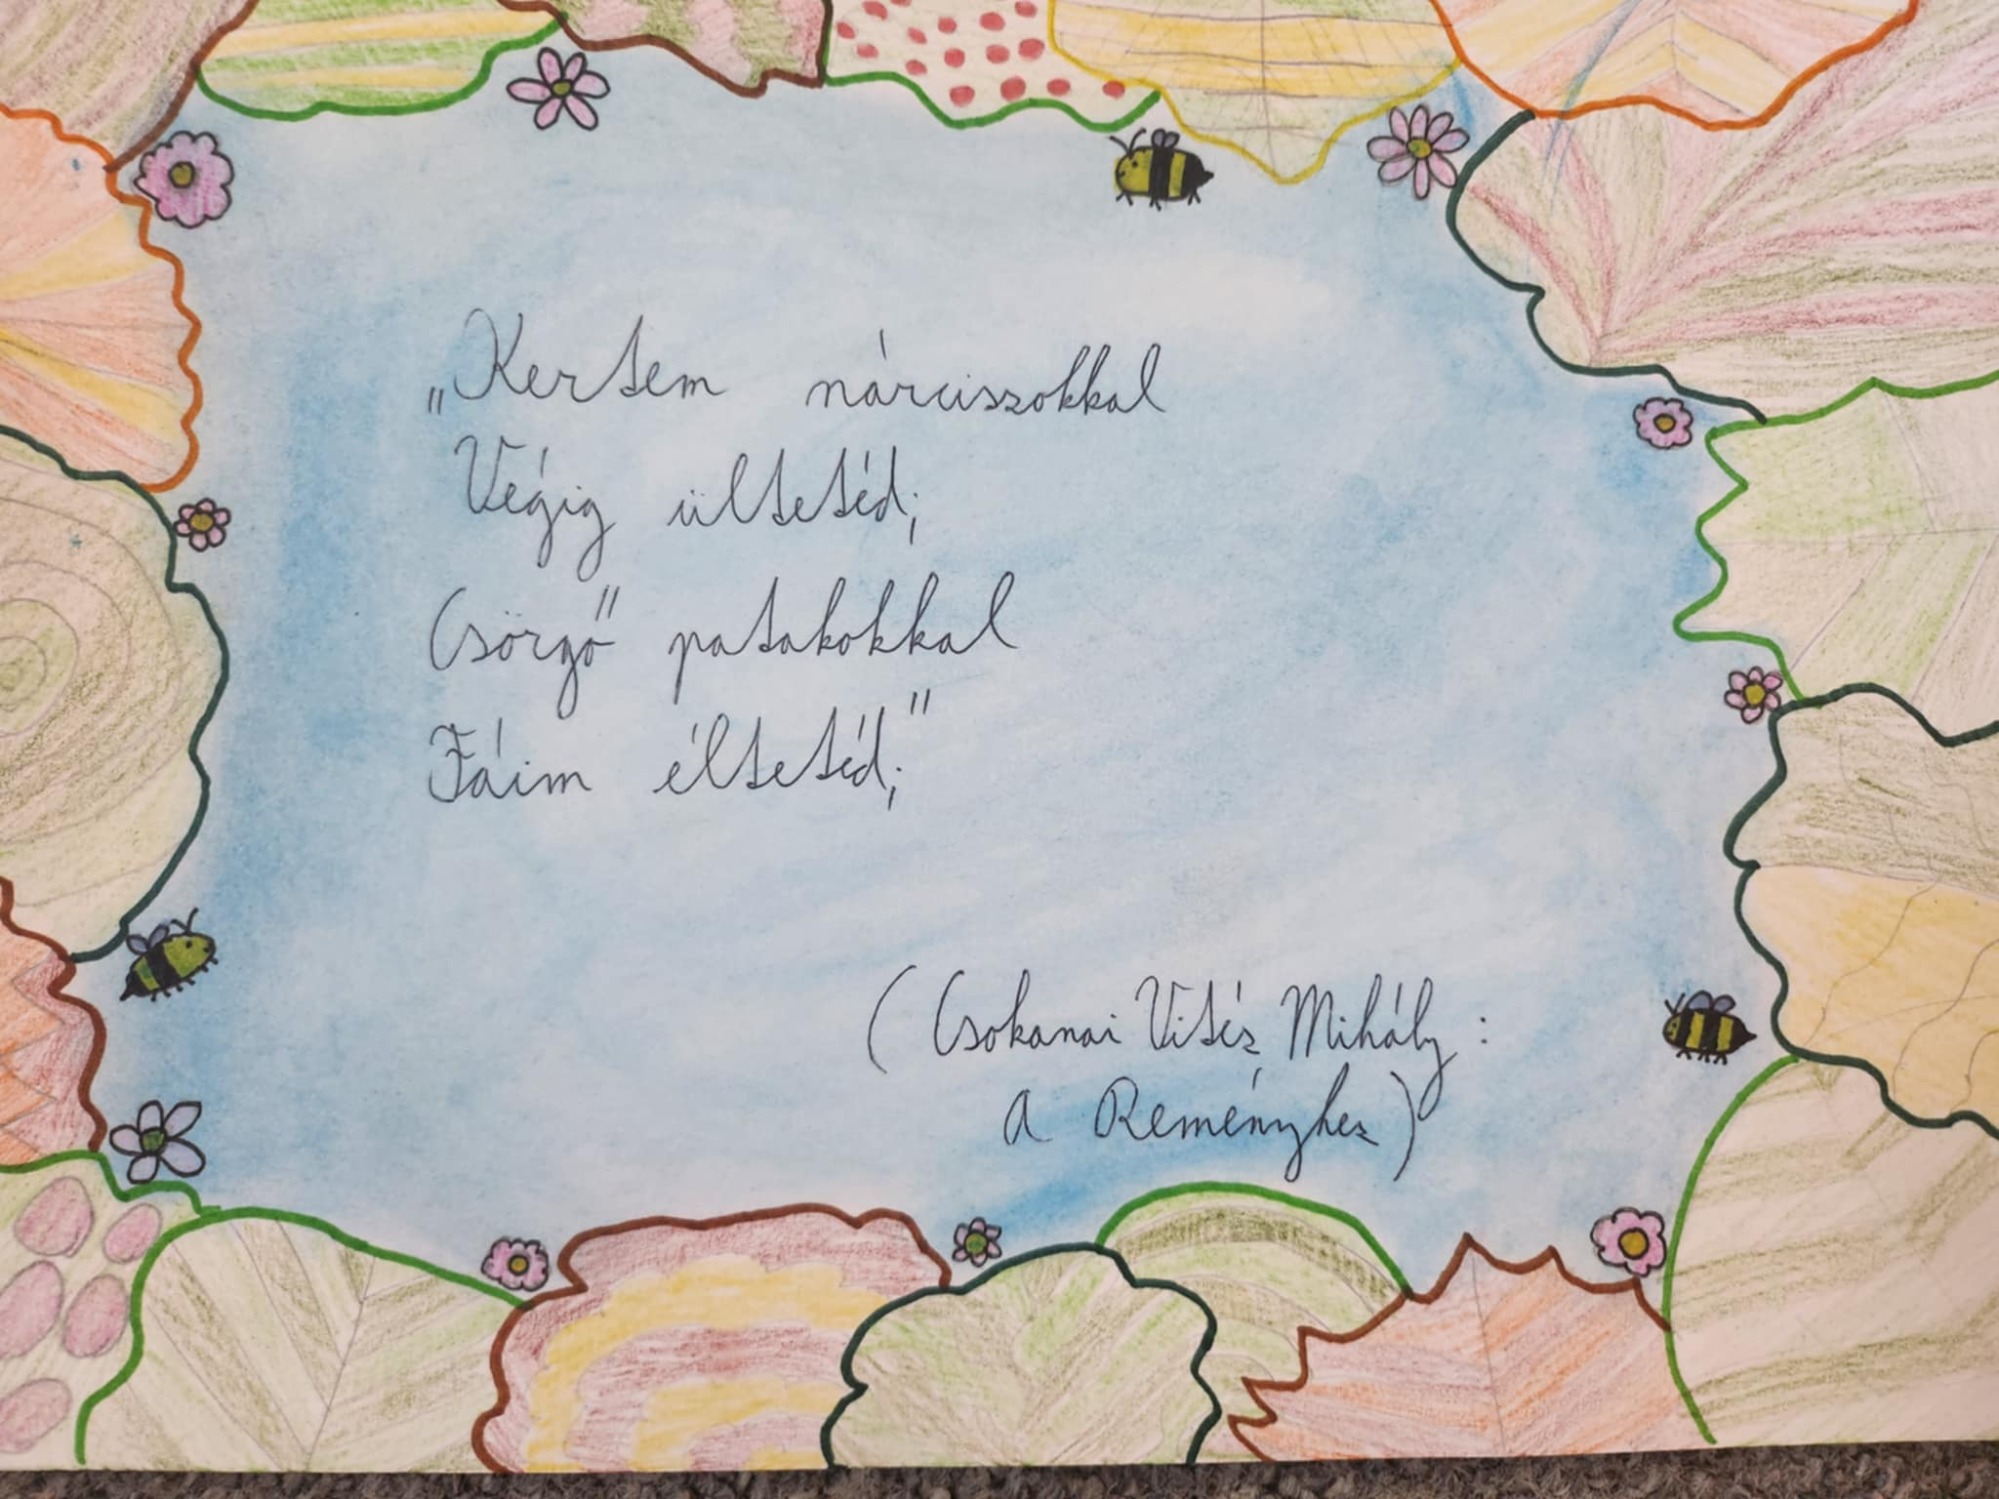 „Kertem nárciszokkal
Végig ültetéd;
Csörgő patakokkal
Fáim éltetéd;”
(Csokanai Vitéz Mihály:
A Reményhez)